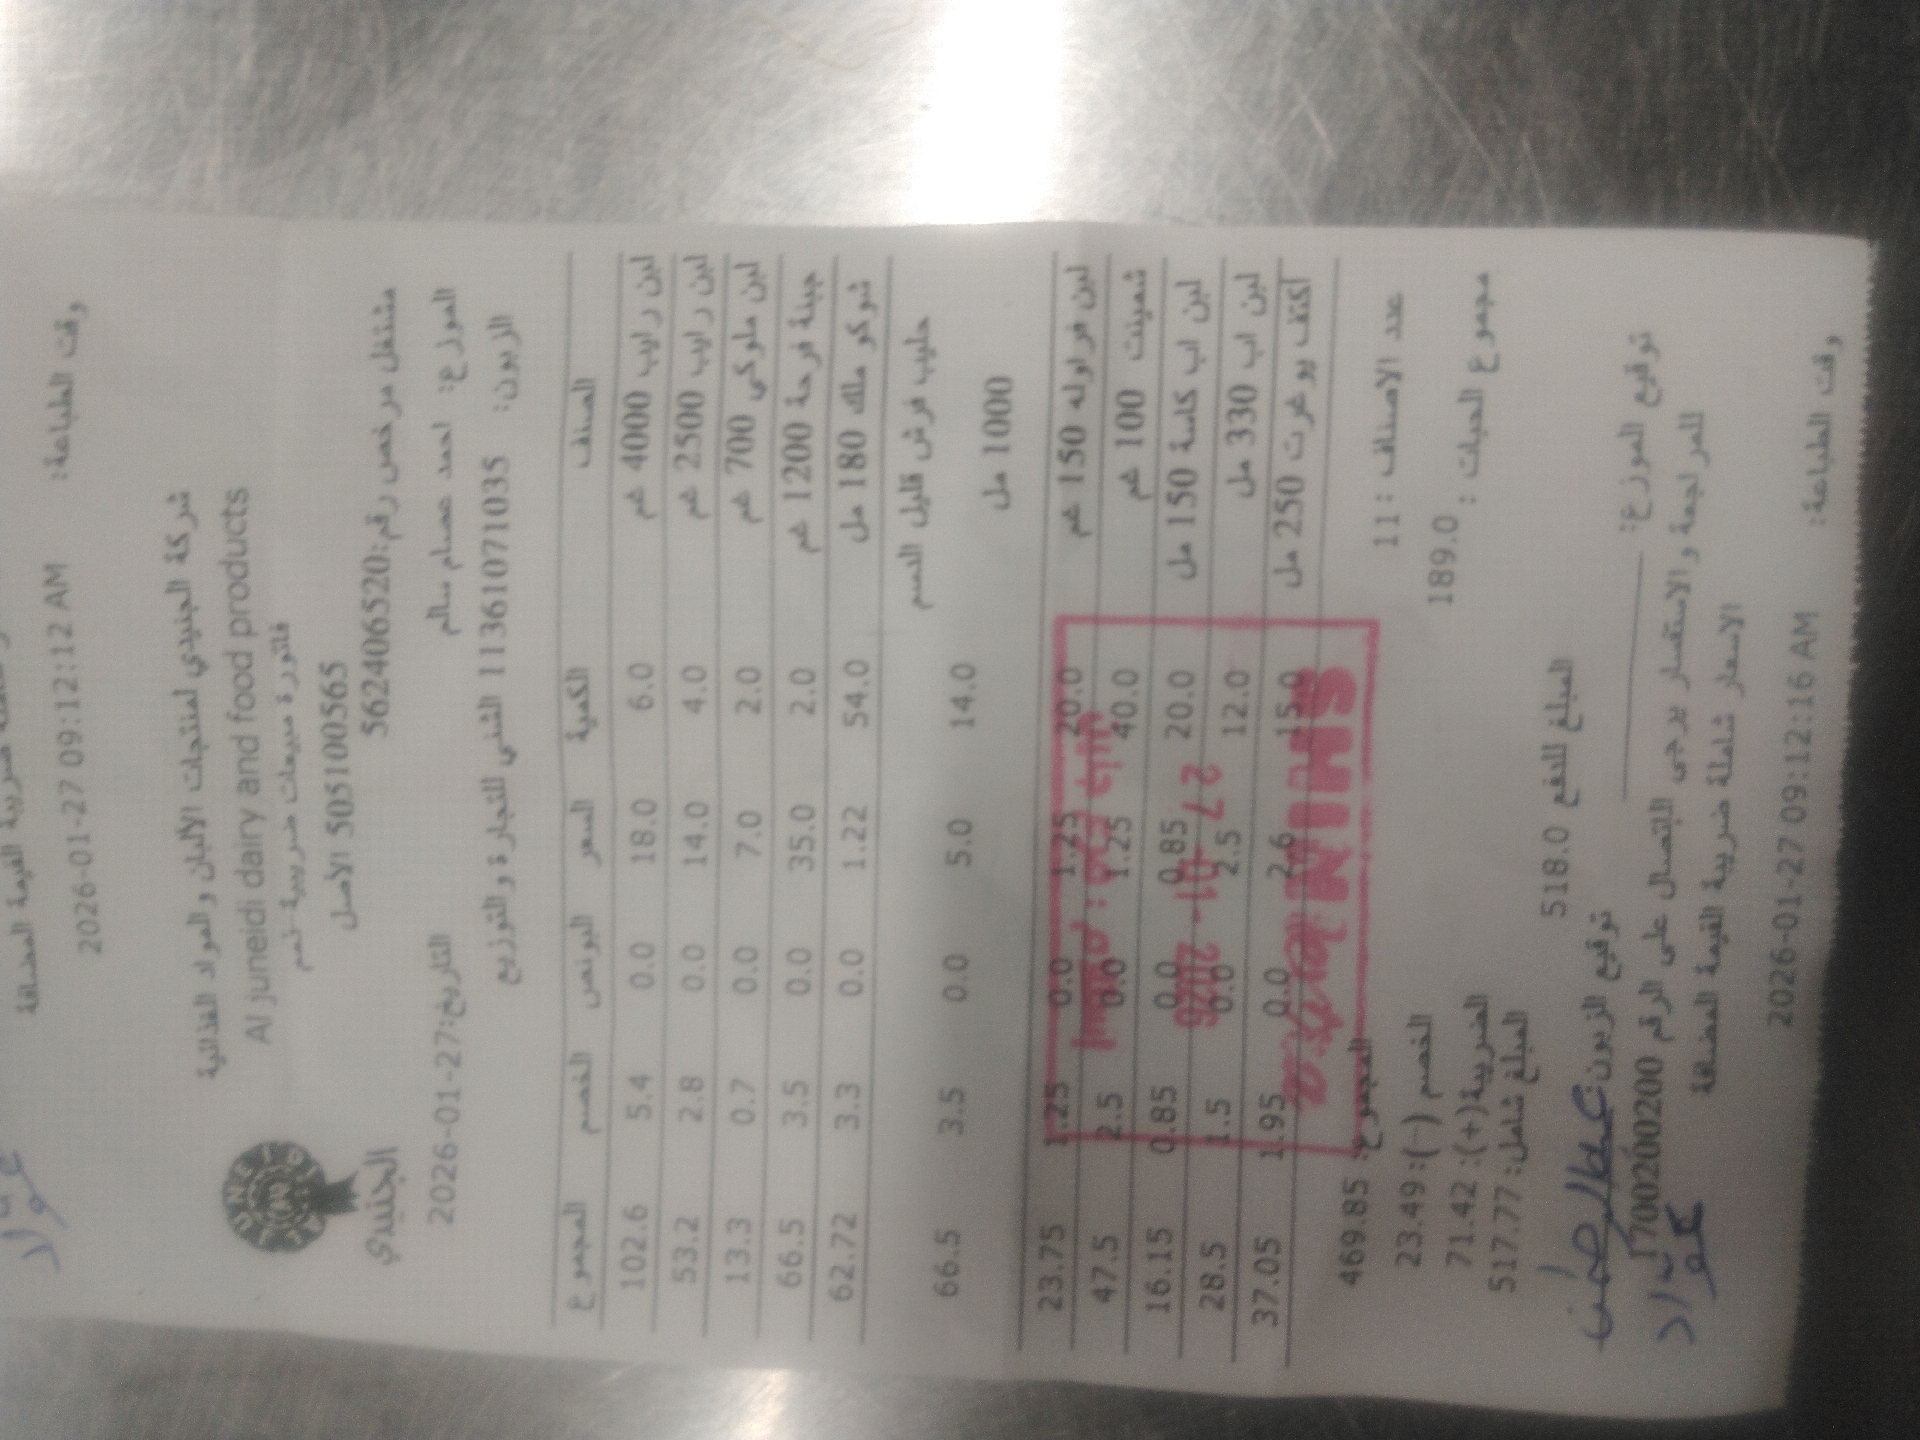 وقت الطباعة: 2026-01-27 09:12:12 AM
شركة الجنيدي لمنتجات الألبان والمواد الغذائية
Al juneidi dairy and food products
فاتورة مبيعات ضريبية -نسم
505100565 الاصل
مشتغل مرخص رقم:562406520
الجنيدي
الموزع: احمد عصام سالم التاريخ:2026-01-27
الزبون: 11361071035 الشني للتجارة والتوزيع
الصنف الكمية السعر البونص الخصم المجموع
لبن رايب 4000 غم 6.0 18.0 0.0 5.4 102.6
لبن رايب 2500 غم 4.0 14.0 0.0 2.8 53.2
لبن ملوكي 700 غم 2.0 7.0 0.0 0.7 13.3
جبنة فرحة 1200 غم 2.0 35.0 0.0 3.5 66.5
شوكو ملك 180 مل 54.0 1.22 0.0 3.3 62.72
حليب فرش قليل الدسم 14.0 5.0 0.0 3.5 66.5
1000 مل
لبن فراوله 150 غم 20.0 1.25 0.0 1.25 23.75
شمينت 100 غم 40.0 1.25 0.0 2.5 47.5
لبن اب كاسة 150 مل 20.0 0.85 0.0 0.85 16.15
لبن اب 330 مل 12.0 2.5 0.0 1.5 28.5
اكتف يوغرت 250 مل 15.0 2.6 0.0 1.95 37.05
27 -01- 2026
SHINI
المجموع: 469.85
عدد الاصناف : 11 الخصم (-): 23.49
مجموع الحبات : 189.0 الضريبة(+): 71.42
المبلغ شامل: 517.77
المبلغ للدفع 518.0
توقيع الموزع: توقيع الزبون:
عبدالرحمن
للمراجعة والاستفسار يرجى الاتصال على الرقم 1700200200
الاسعار شاملة ضريبة القيمة المضافة
وقت الطباعة: 2026-01-27 09:12:16 AM